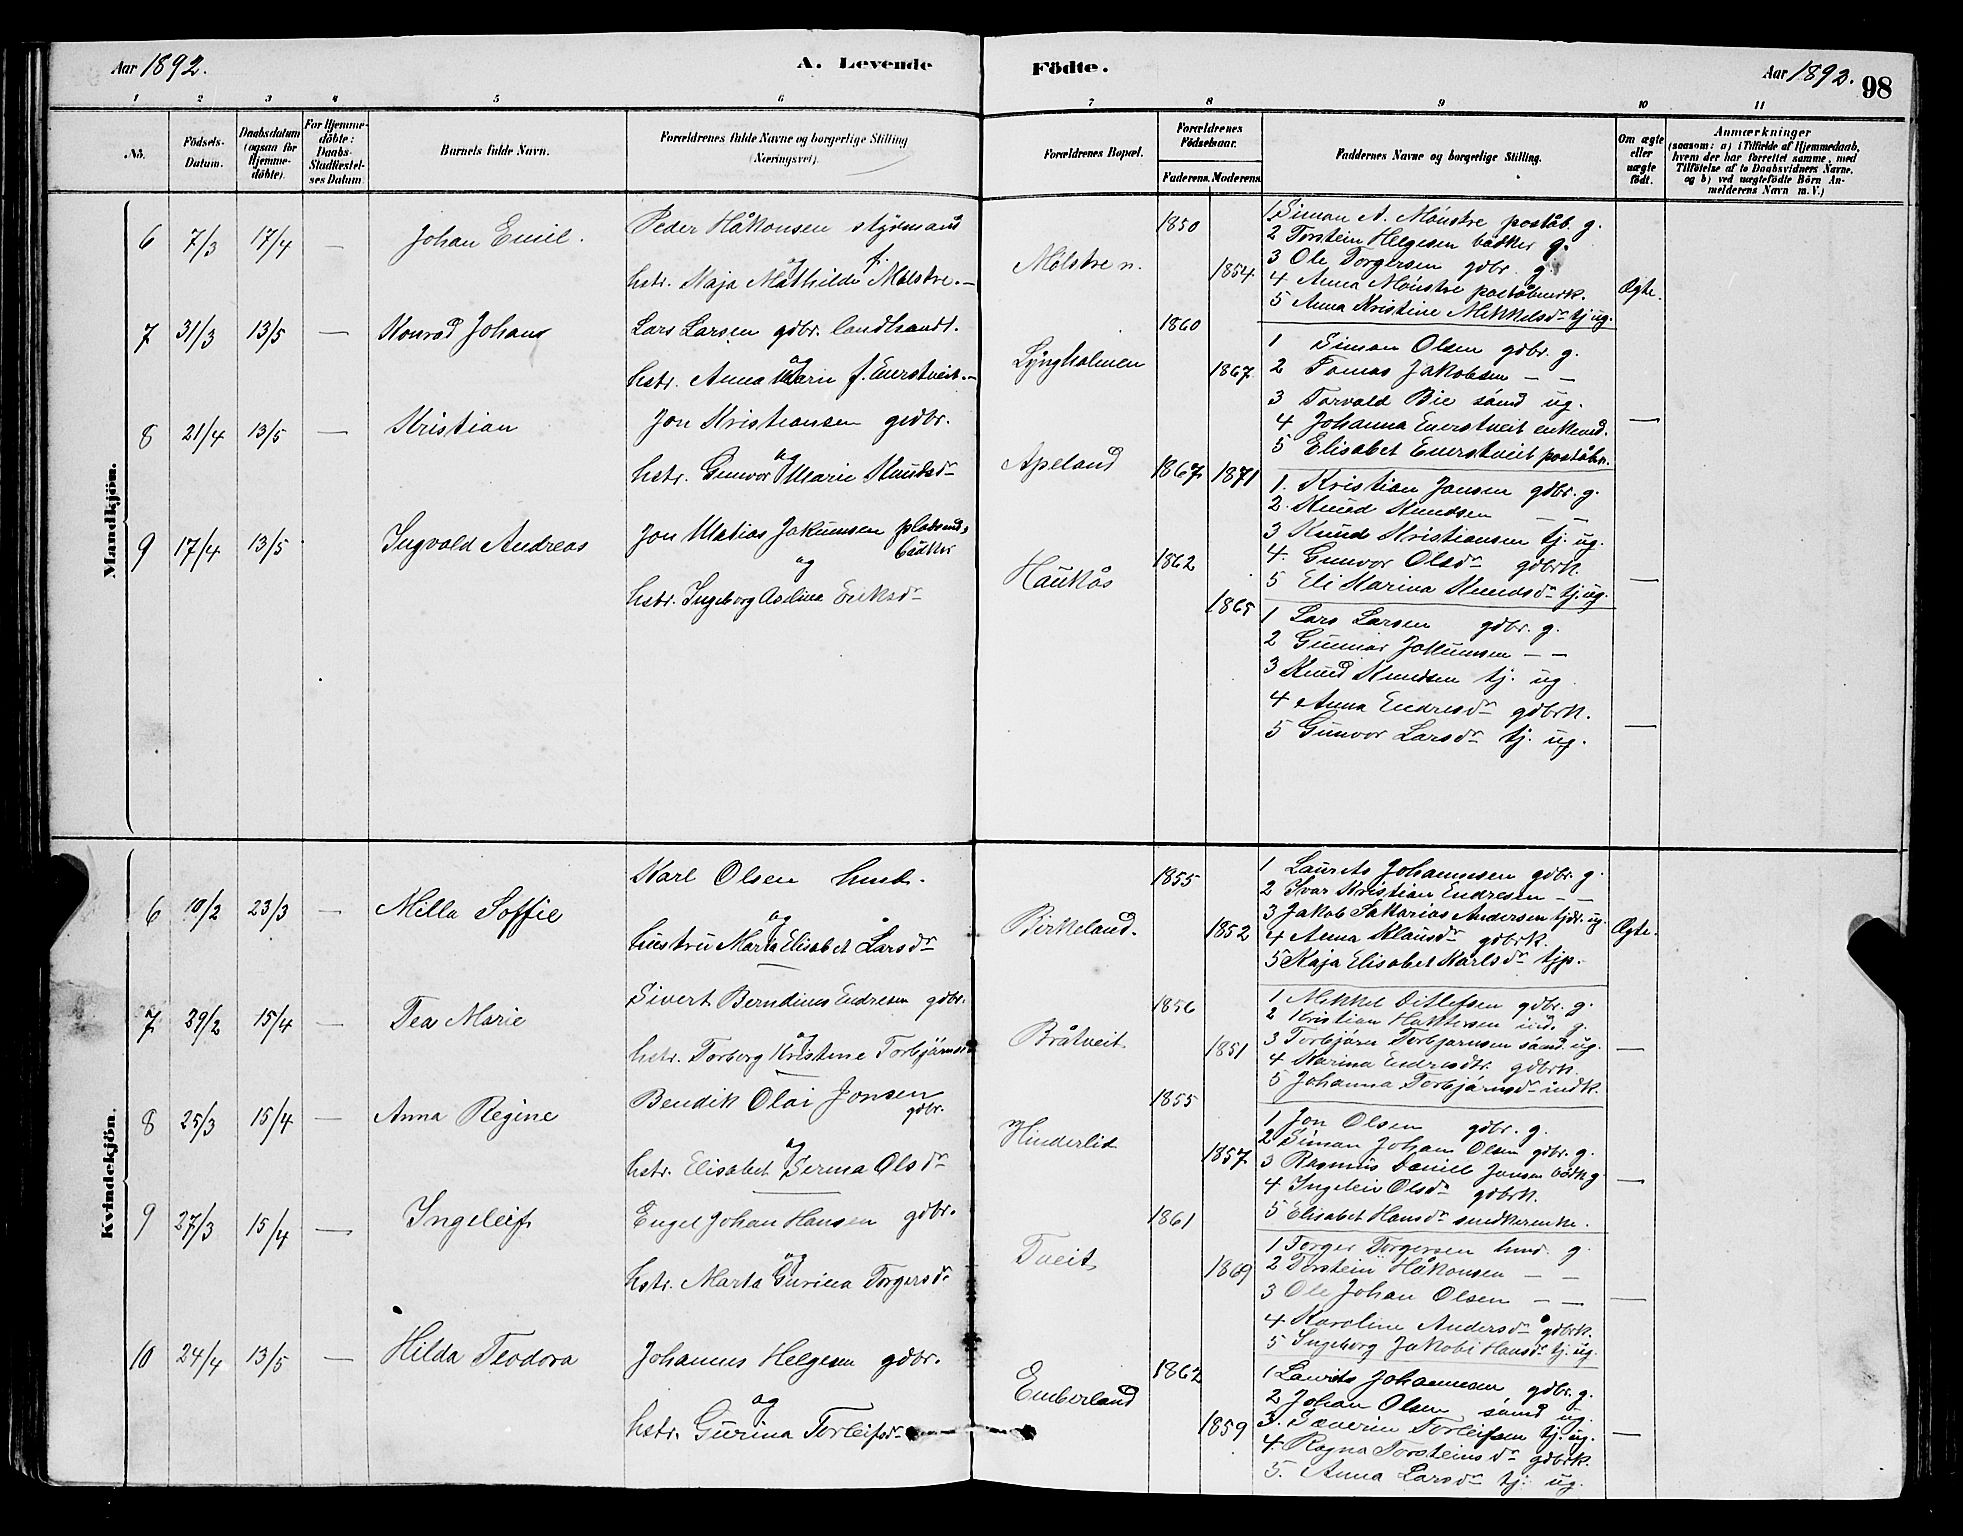 Aar 1892.
A. Levende
Födte.
Aar 1892.
98
1 2 3 4 5 6 7 8 9 10 11
No.
Födsels-
Datum.
Daabsdatum
(ogsaa for
Hjemme-
döbte).
For Hjemme-
döbte:
Daabs-
Stadfæstel-
ses Datum
Barnets fulde Navn.
Forældrenes fulde Navne og borgerlige Stilling
(Næringsvei).
Forældrenes Bopæl.
Forældrenes
Födselsaar.
Faderens. Moderens.
Faddernes Navne og borgerlige Stilling.
Om ægte
eller
uægte
födt.
Anmærkninger
(saasom: a) i Tilfælde af Hjemmedaab,
hvem der har forrettet samme, med
Tilföielse af to Daabsvidners Navne,
og b) ved uægtefödte Börn An-
melderens Navn m. V.)
Mandkjön.
6 7/3 17/4 — Johan Emil.
Peder Håkonsen styrmand
og f.
hstr. Maja Mathilde Mølstre.—
Mølstre n.
1850
1854
1 Simon A. Mønstre poståb. g.
2 Torstein Helgesen bødker g.
3 Ole Torgersen gdbr. g.
4 Anna Mønstre poståbnrk.
5 Anna Kristine Mikkelsdr tj ug.
Ægte.
7 31/3 13/5 — Konrad Johans
Lars Larsen gdbr. landhandl.
og
hstr. Anna Marie f. Enerstveit.—
Lyngholmen
1860
1867
1 Simon Olsen gdbr. g.
2 Tomas Jakobsen — —
3 Torvald Bie sømd ug.
4 Johanna Enerstveit enkemd.
5 Elisabet Enerstveit poståbn.
—
8 21/4 13/5 — Kristian
Jon Kristiansen grdbr.
og
hstr. Gunvor Marie Knudsdr
Apeland
1867 1871
1. Kristian Jonsen gdbr. g.
2. Knud Knudsen — —
3 Knud Kristiansen tj. ug.
4. Gunvor Olsdr gdbrk.
5 Eli Marina Knudsdr tj. ug.
—
9 17/4 13/5 Ingvald Andreas
Jon Matias Jakumsen pladsmd.
bødker
og
hstr. Ingeborg Aselina Eriksdr
Haukås
1862
1865
1 Lars Larsen gdbr. g.
2 Gunnar Jakumsen — —
3 Knud Knudsen tj. ug
4 Anna Endresdr gdbrk.
5 Gunvor Larsdr tj. ug.
—
Kvindekjön.
6 10/2 23/3 — Milla Soffie
Karl Olsen hmd.
og
hustru Marta Elisabet Larsdr
Birkeland.
1855
1852
1 Laurits Johannesen gdbr. g.
2 Ivar Kristian Endresen — —
3 Jakob Sakarias Andersen tjdr. ug.
4 Anna Klausdr gdbrk.
5 Kaja Elisabet Karlsdr tjp.
Ægte.
7 29/2 15/4 — Tea Marie
Sivert Berndinus Endresen gdbr.
og
hstr. Torborg Kristine Torbjørnsdr
Bråtveit
1856
1851
1 Mikkel Ditlefsen gdbr. g.
2 Kristian Haktorsen ind. g.
3 Torbjørn Torbjørnsen sømd. ug.
4 Karina Endresdtr. gdbrk.
5 Johanna Torbjørnsdr indk.
—
8 25/3 15/4 — Anna Regine
Bendik Olai Jonsen
gdbr.
og
hstr. Elisabet Serina Olsdr
Hinderlid
1855
1857
1 Jon Olsen gdbr. g.
2 Simon Johan Olsen gdbr. g.
3 Rasmus Daniel Jonsen bødk g
4 Ingeleiv Olsdr gdbrk.
5 Elisabet Hansdr snedkerenke.
—
9 27/3 15/4 — Ingeleif
Engel Johan Hansen gdbr.
og
hstr. Marta Gurina Torgersdr
Tveit
1861
1869
1 Torger Torgersen hmd. g.
2 Torstein Håkonsen — —
3 Ole Johan Olsen — —
4 Karoline Andersdr gdbrk.
5 Ingeborg Jakobi Hansdr tj. ug.
—
10 24/4 13/5 — Hilda Teodora
Johannes Helgesen gdbr.
og
hstr. Gurina Torleifsdr
Emberland
1862
1859
1 Laurits Johannesen gdbr. g.
2 Johan Olsen sømd ug.
3. Severin Torleifsen tj. ug.
4. Ragna Torsteinsdr gdbrk.
5. Anna Larsdr tj. ug.
—